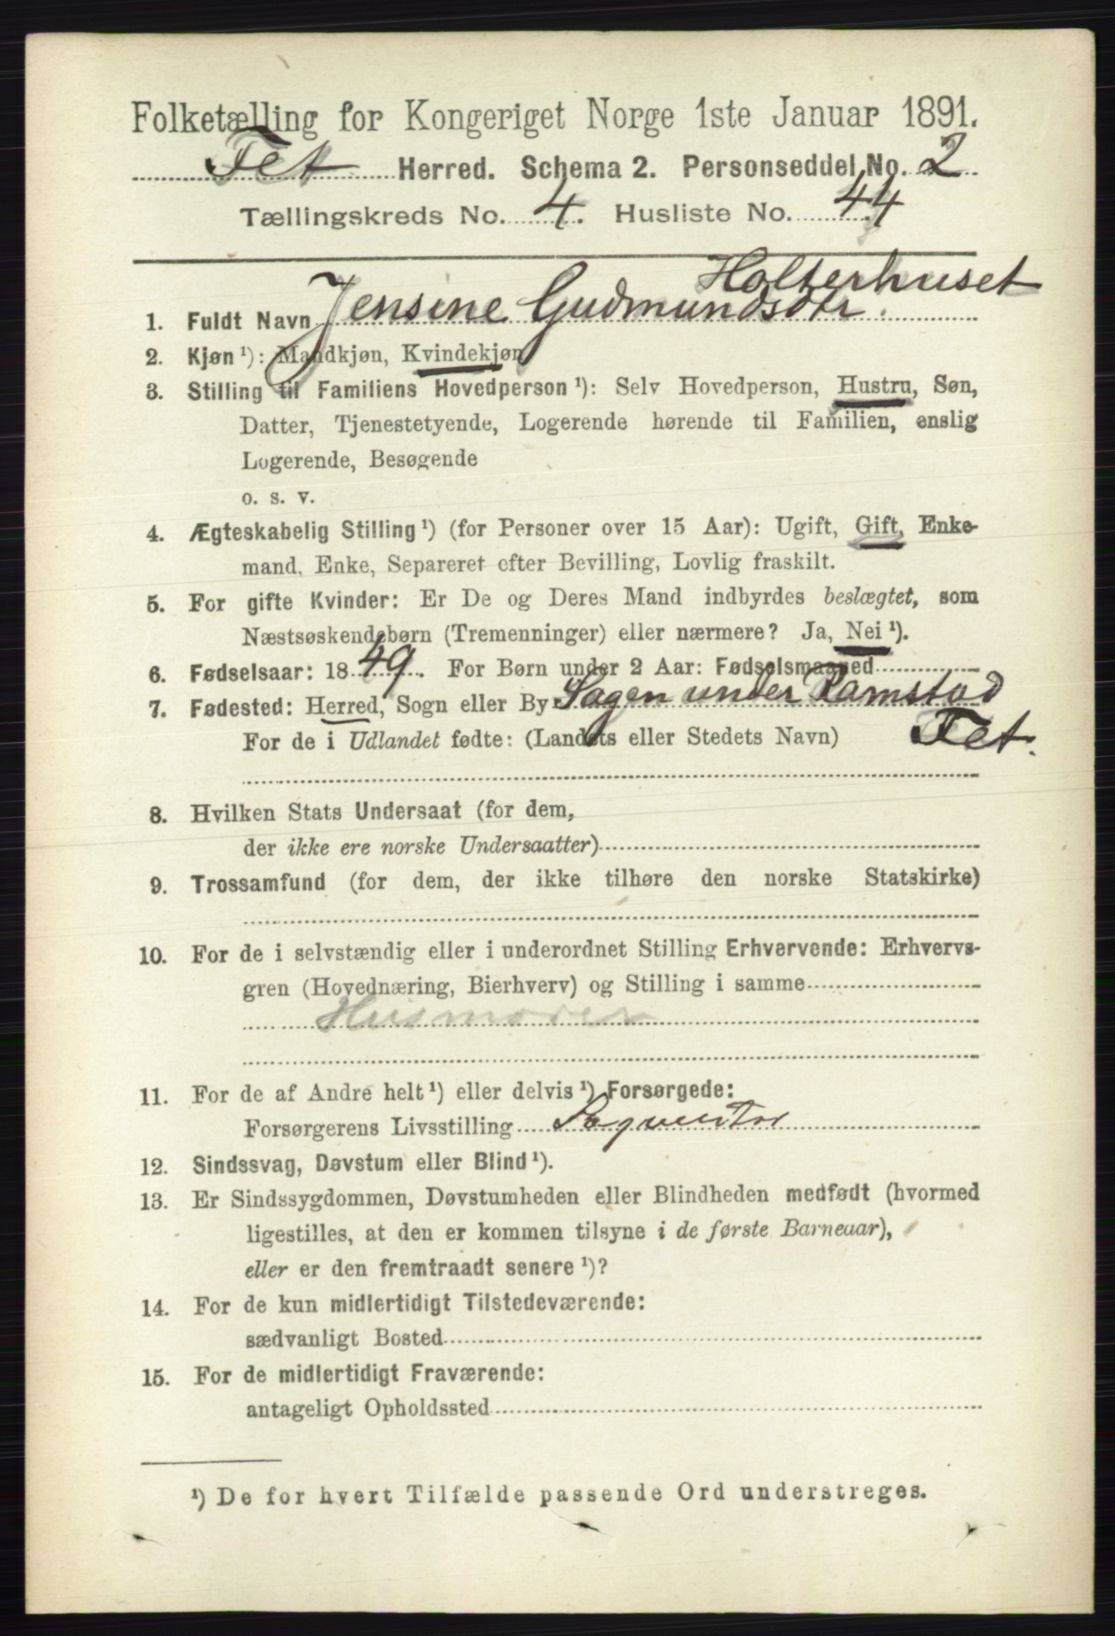 Folketælling for Kongeriget Norge 1ste Januar 1891.
Fet Herred. Schema 2. Personseddel No. 2
Tællingskreds No. 4. Husliste No. 44
Holterhuset
1. Fuldt Navn Jensine Gudmundsdtr.
2. Kjøn ¹): Mandkjøn, Kvindekjøn
3. Stilling til Familiens Hovedperson ¹): Selv Hovedperson, Hustru, Søn,
Datter, Tjenestetyende, Logerende hørende til Familien, enslig
Logerende, Besøgende
o. s. v.
4. Ægteskabelig Stilling ¹) (for Personer over 15 Aar): Ugift, Gift, Enke-
mand, Enke, Separeret efter Bevilling, Lovlig fraskilt.
5. For gifte Kvinder: Er De og Deres Mand indbyrdes beslægtet, som
Næstsøskendebørn (Tremenninger) eller nærmere? Ja, Nei ¹).
6. Fødselsaar: 1849. For Børn under 2 Aar: Fødselsmaaned
7. Fødested: Herred, Sogn eller By Sagen under Ramstad
For de i Udlandet fødte: (Landets eller Stedets Navn) Fet.
8. Hvilken Stats Undersaat (for dem,
der ikke ere norske Undersaatter)
9. Trossamfund (for dem, der ikke tilhøre den norske Statskirke)
10. For de i selvstændig eller i underordnet Stilling Erhvervende: Erhvervs-
gren (Hovednæring, Bierhverv) og Stilling i samme
Husmoder
11. For de af Andre helt ¹) eller delvis ¹) Forsørgede:
Forsørgerens Livsstilling
12. Sindssvag, Døvstum eller Blind ¹).
13. Er Sindssygdommen, Døvstumheden eller Blindheden medfødt (hvormed
ligestilles, at den er kommen tilsyne i de første Barneaar),
eller er den fremtraadt senere ¹)?
14. For de kun midlertidigt Tilstedeværende:
sædvanligt Bosted
15. For de midlertidigt Fraværende:
antageligt Opholdssted
¹) De for hvert Tilfælde passende Ord understreges.